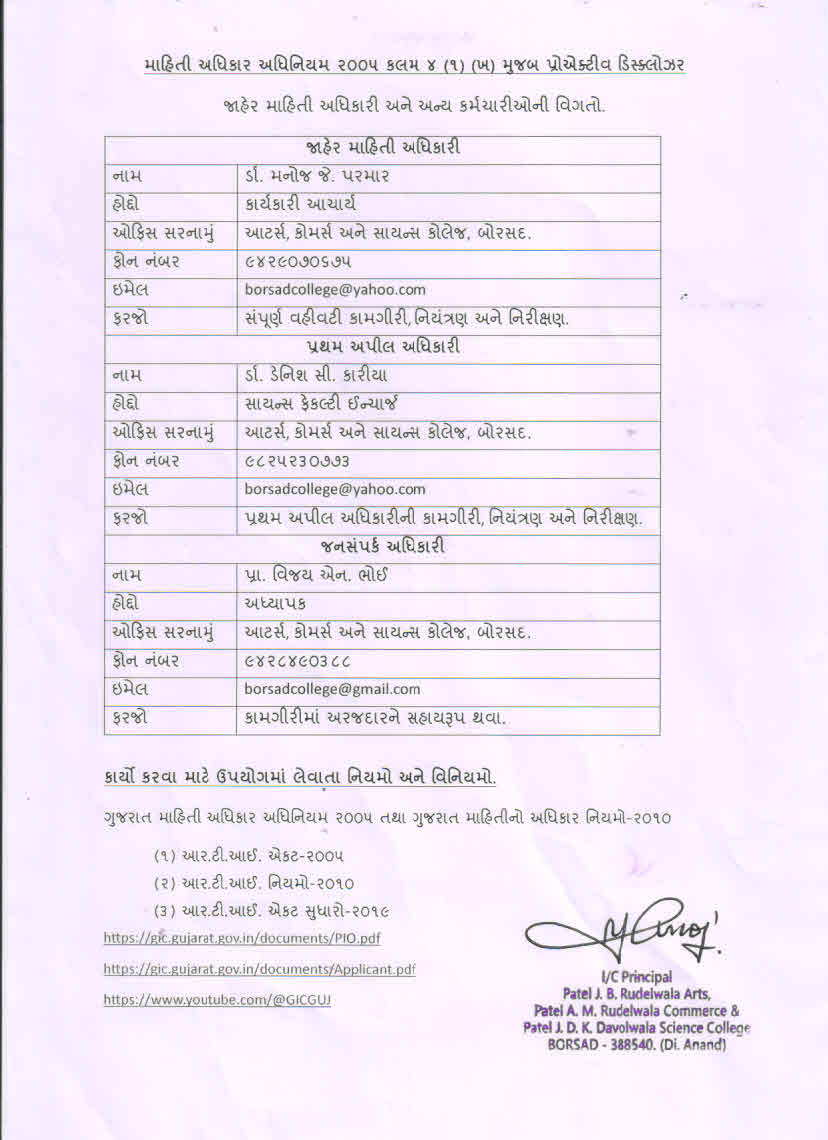 માહિતી અધિકાર અધિનિયમ ૨૦૦૫ કલમ ૪ (૧) (ખ) મુજબ પ્રોએક્ટીવ ડિસ્ક્લોઝર
જાહેર માહિતી અધિકારી અને અન્ય કર્મચારીઓની વિગતો.
જાહેર માહિતી અધિકારી
નામ ડૉ. મનોજ જે. પરમાર
હોદ્દો કાર્યકારી આચાર્ય
ઓફિસ સરનામું આટર્સ, કોમર્સ અને સાયન્સ કોલેજ, બોરસદ.
ફોન નંબર ૯૪૨૯૦૭૦૬૭૫
ઇમેલ borsadcollege@yahoo.com
ફરજો સંપૂર્ણ વહીવટી કામગીરી,નિયંત્રણ અને નિરીક્ષણ.
પ્રથમ અપીલ અધિકારી
નામ ડૉ. ડેનિશ સી. કારીયા
હોદ્દો સાયન્સ ફેકલ્ટી ઈન્ચાર્જ
ઓફિસ સરનામું આટર્સ, કોમર્સ અને સાયન્સ કોલેજ, બોરસદ.
ફોન નંબર ૯૮૨૫૨૩૦૭૭૩
ઇમેલ borsadcollege@yahoo.com
ફરજો પ્રથમ અપીલ અધિકારીની કામગીરી, નિયંત્રણ અને નિરીક્ષણ.
જનસંપર્ક અધિકારી
નામ પ્રા. વિજય એન. ભોઈ
હોદ્દો અધ્યાપક
ઓફિસ સરનામું આટર્સ, કોમર્સ અને સાયન્સ કોલેજ, બોરસદ.
ફોન નંબર ૯૪૨૮૪૯૦૩૮૮
ઇમેલ borsadcollege@gmail.com
ફરજો કામગીરીમાં અરજદારને સહાયરૂપ થવા.
કાર્યો કરવા માટે ઉપયોગમાં લેવાતા નિયમો અને વિનિયમો.
ગુજરાત માહિતી અધિકાર અધિનિયમ ૨૦૦૫ તથા ગુજરાત માહિતીનો અધિકાર નિયમો-૨૦૧૦
(૧) આર.ટી.આઈ. એકટ-૨૦૦૫
(૨) આર.ટી.આઈ. નિયમો-૨૦૧૦
(૩) આર.ટી.આઈ. એકટ સુધારો-૨૦૧૯
https://gic.gujarat.gov.in/documents/PIO.pdf
https://gic.gujarat.gov.in/documents/Applicant.pdf
https://www.youtube.com/@GICGUJ
I/C Principal
Patel J. B. Rudelwala Arts,
Patel A. M. Rudelwala Commerce &
Patel J. D. K. Davolwala Science College
BORSAD - 388540. (Di. Anand)